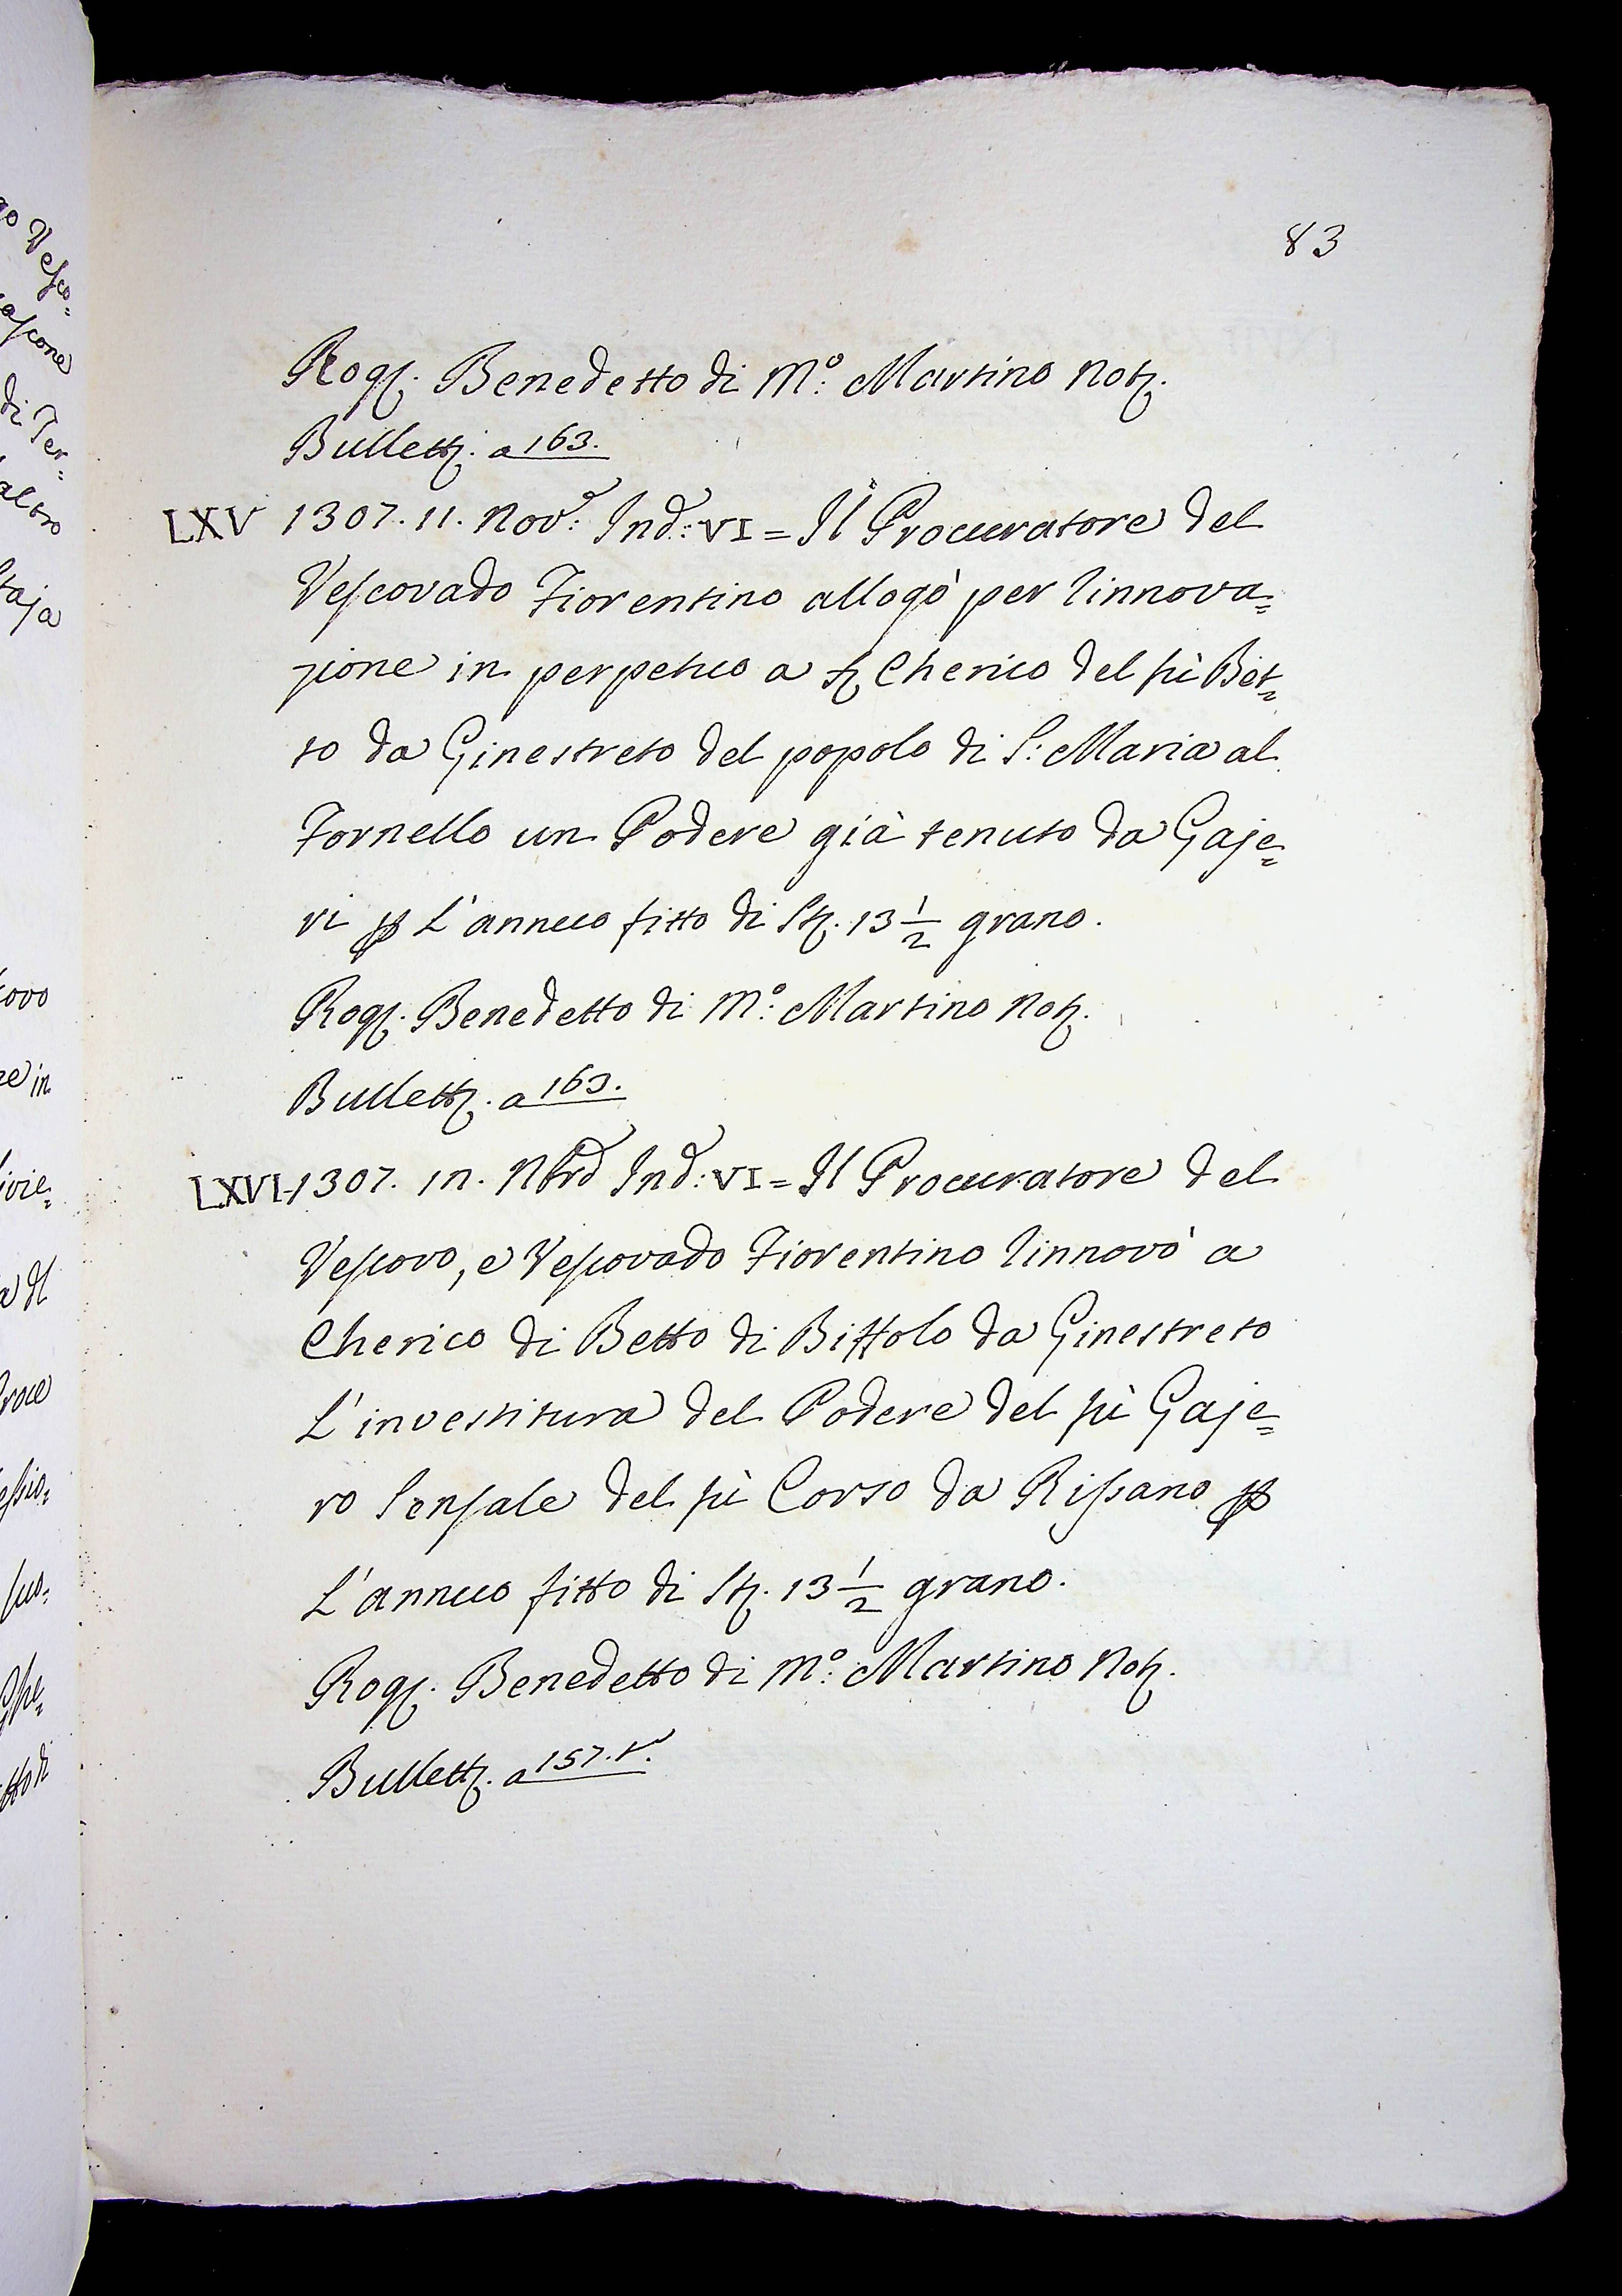 83
Rog. Benedetto di M.º Martino Not.
Bullett. a 163.
LXV 1307. 11. Nov.e Ind: VI = Il Procuratore del
Vescovado Fiorentino allogò per linnova=
zione in perpetuo a Cherico del fù Bet=
to da Ginestreto del popolo di S: Maria al
Fornello un Podere già tenuto da Gaje=
ri p L'annuo fitto di St. 13 1/2 grano.
Rog. Benedetto di M.º Martino Not.
Bullett. a 163.
LXVI-1307. in. Nbre Ind: VI = Il Procuratore del
Vescovo, e Vescovado Fiorentino linnovò a
Cherico di Betto di Biffolo da Ginestreto
L'investitura del Podere del fù Gaje=
ro Sensale del fù Corso da Rissano p
L'annuo fitto di St. 13 1/2 grano.
Rog. Benedetto di M.º Martino Not.
Bullett. a 157. v.